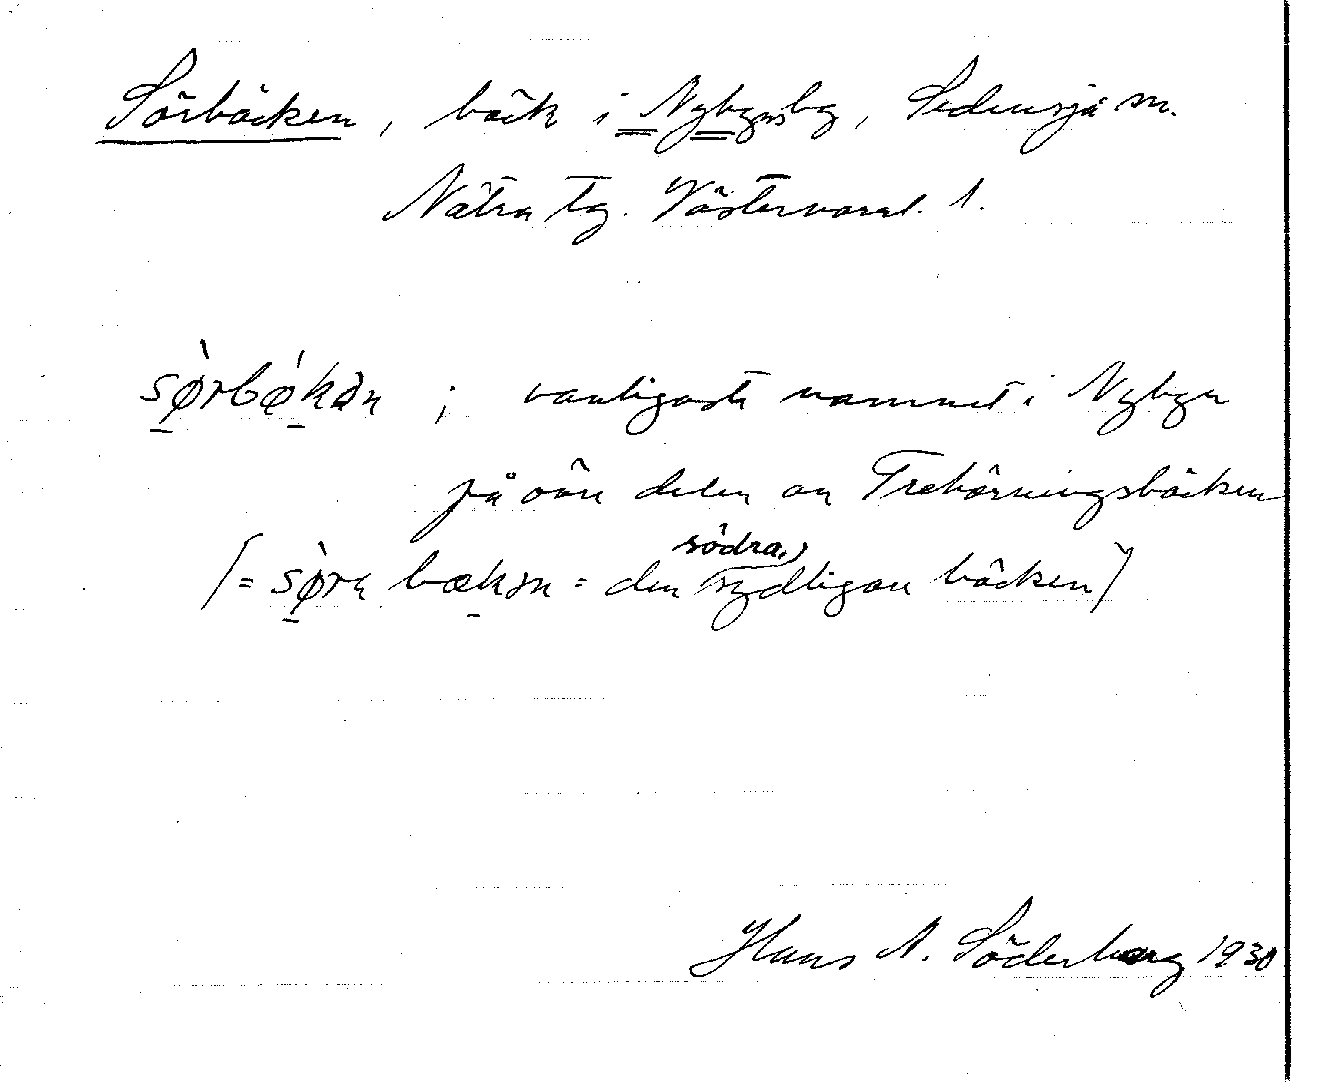 Sörbäcken, bäck i Nybyns by, Sidensjö sn.
Nätra tg. Västernorrl. l.
sø̀rbǿkən ; vanligaste namnet i Nybyn
på övre delen av Trehörningsbäcken
södra,)
(= sø̀ra bækən = den sydligare bäcken)
Hans N. Söderberg 1930